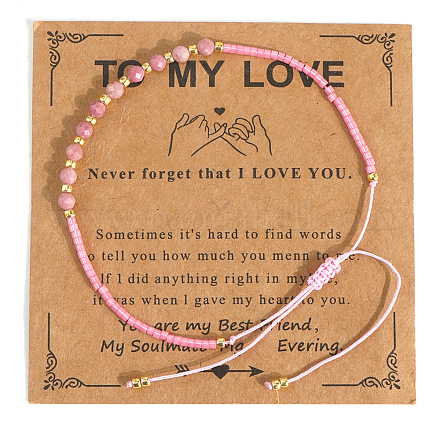 TO MY LOVE
Never forget that I LOVE YOU.
Sometimes it's hard to find words
to tell you how much you menn to me.
If I did anything right in my life,
it was when I gave my heart to you.
You are my Best Friend,
My Soulmate Evering.